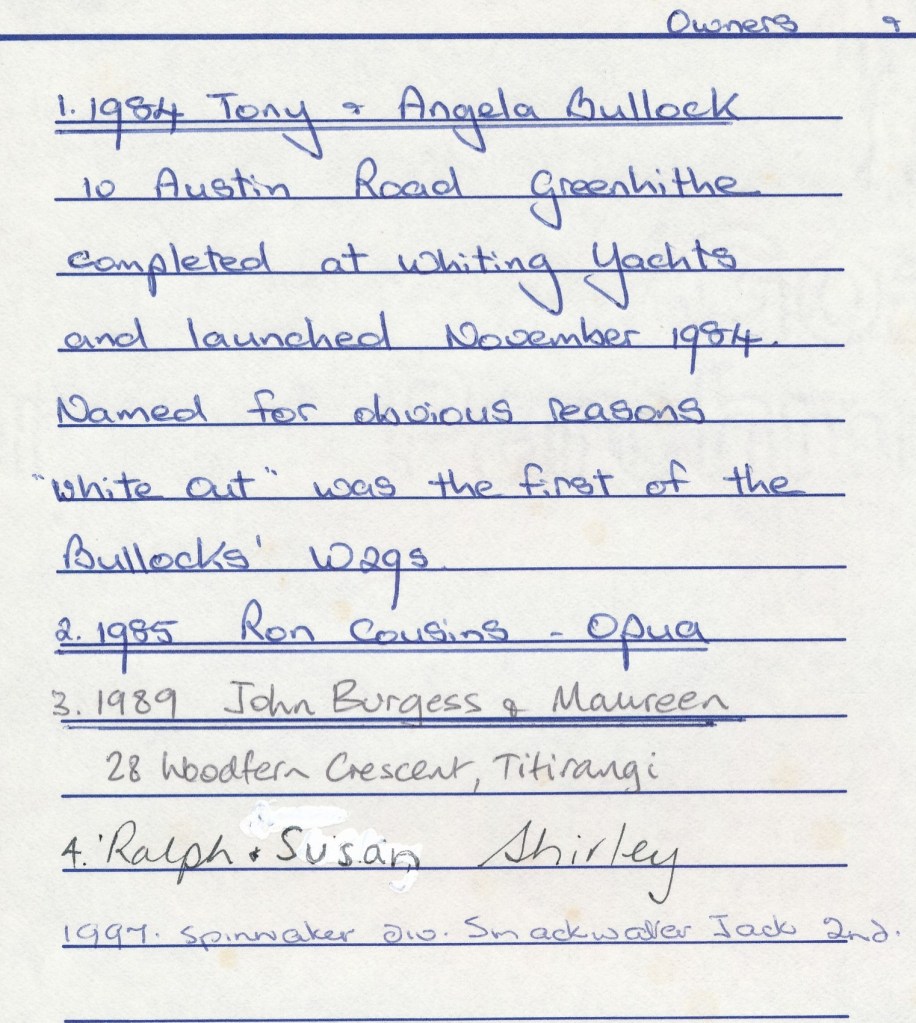 Owners &
1. 1984 Tony & Angela Bullock
10 Austin Road Greenhithe
completed at Whiting Yachts
and launched November 1984.
Named for obvious reasons
"White Out" was the first of the
Bullocks' W29s.
2. 1985 Ron Cousins - Opua
3. 1989 John Burgess & Maureen
28 Woodfern Crescent, Titirangi
4. Ralph & Susan Shirley
1997. Spinnaker div. Smackwater Jack 2nd.